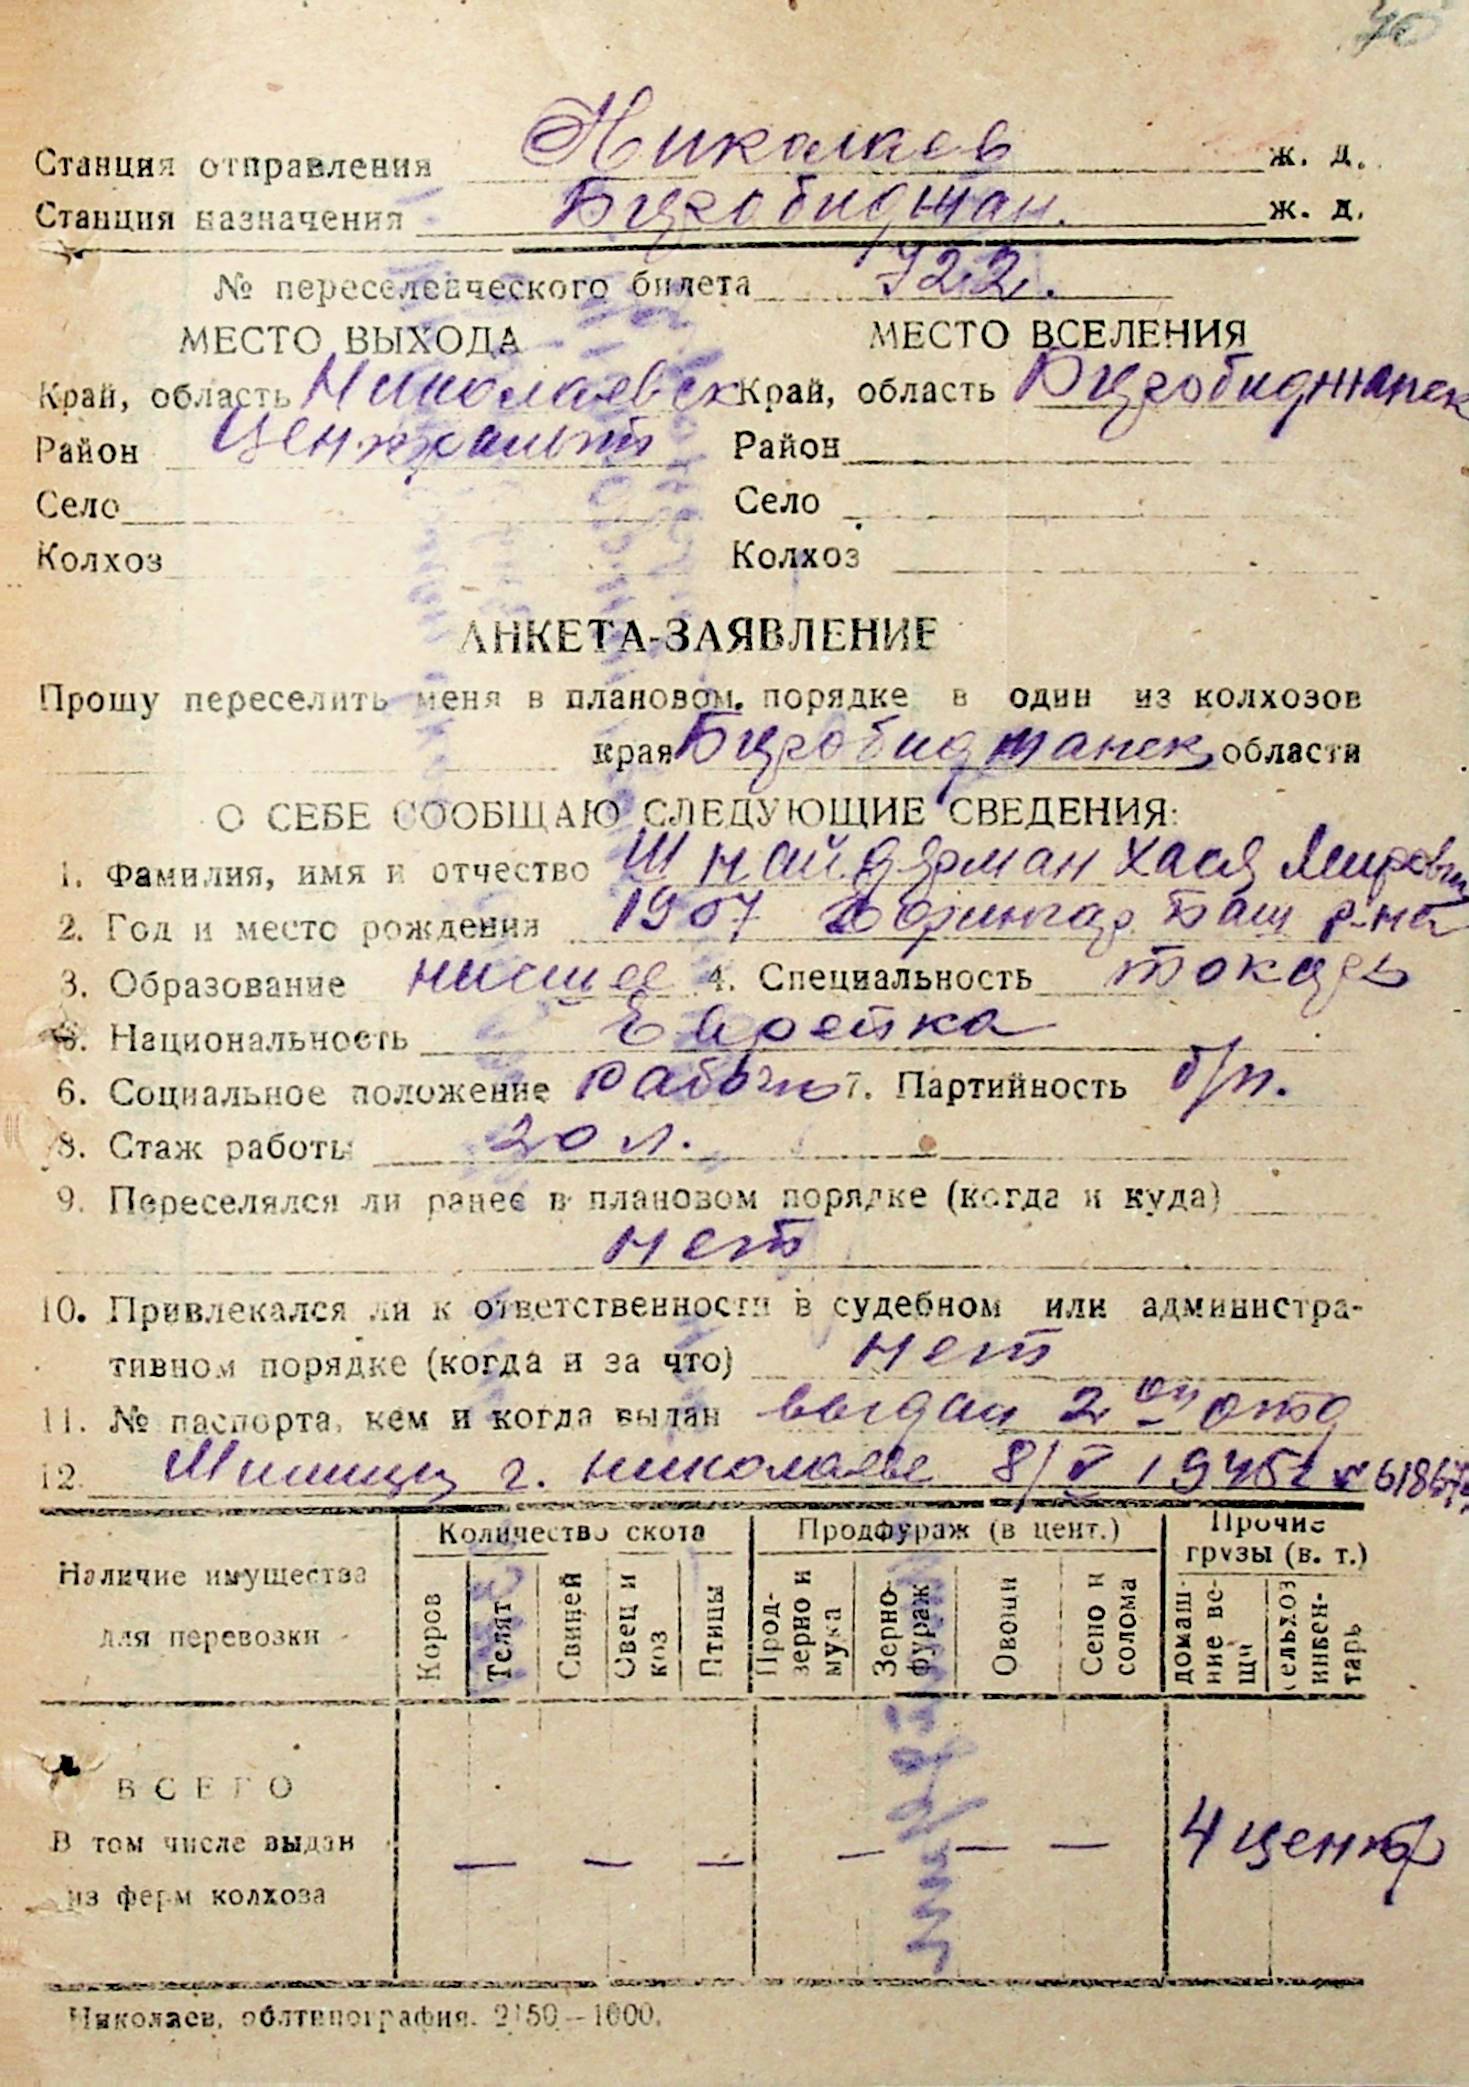 70
Станция отправления Николаев ж. д.
Станция назначения Биробиджан. ж. д.
№ переселенческого билета 722.
МЕСТО ВЫХОДА МЕСТО ВСЕЛЕНИЯ
Край, область Николаевск Край, область Биробиджанск
Район Централни Район
Село Село
Колхоз Колхоз
АНКЕТА-ЗАЯВЛЕНИЕ
Прошу переселить меня в плановом порядке в один из колхозов
края Биробиджанск области
О СЕБЕ СООБЩАЮ СЛЕДУЮЩИЕ СВЕДЕНИЯ:
1. Фамилия, имя и отчество Шнайдерман Хася
2. Год и место рождения 1907 Баш р-на
3. Образование нисшее 4. Специальность токарь
5. Национальность Еврейка
6. Социальное положение рабоч 7. Партийность б/п.
8. Стаж работы 20 л.
9. Переселялся ли ранее в плановом порядке (когда и куда)
нет
10. Привлекался ли к ответственности в судебном или администра-
тивном порядке (когда и за что) нет
11. № паспорта, кем и когда выдан выдан 2 ом отд
12. Милиции г. Николаеве 8/V 1945г
Наличие имущества для перевозки
Количество скота Продфураж (в цент.) Прочие грузы (в. т.)
Коров Телят Свиней Овец и коз Птицы Прод-зерно и мука Зерно-фураж Овощи Сено и солома домаш-ние ве-щи сельхоз инвен-тарь
ВСЕГО
В том числе выдан — — — — — — 4 центр
из ферм колхоза
Николаев, облтипография. 2150—1000.